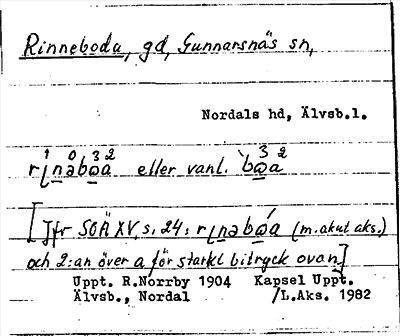 Rinneboda, gd, Gunnarsnäs sn,
Nordals hd, Älvsb.l.
1 0 3 2 3 2
rɩnəbω̲a eller vanl. `bω̲a
[Jfr SOÄ XV, s. 24: rɩnəbώa (m. akut aks.)
och 2:an över a för starkt bitryck ovan]
Uppt. R.Norrby 1904 Kapsel Uppt.
Älvsb., Nordal /L.Aks. 1982